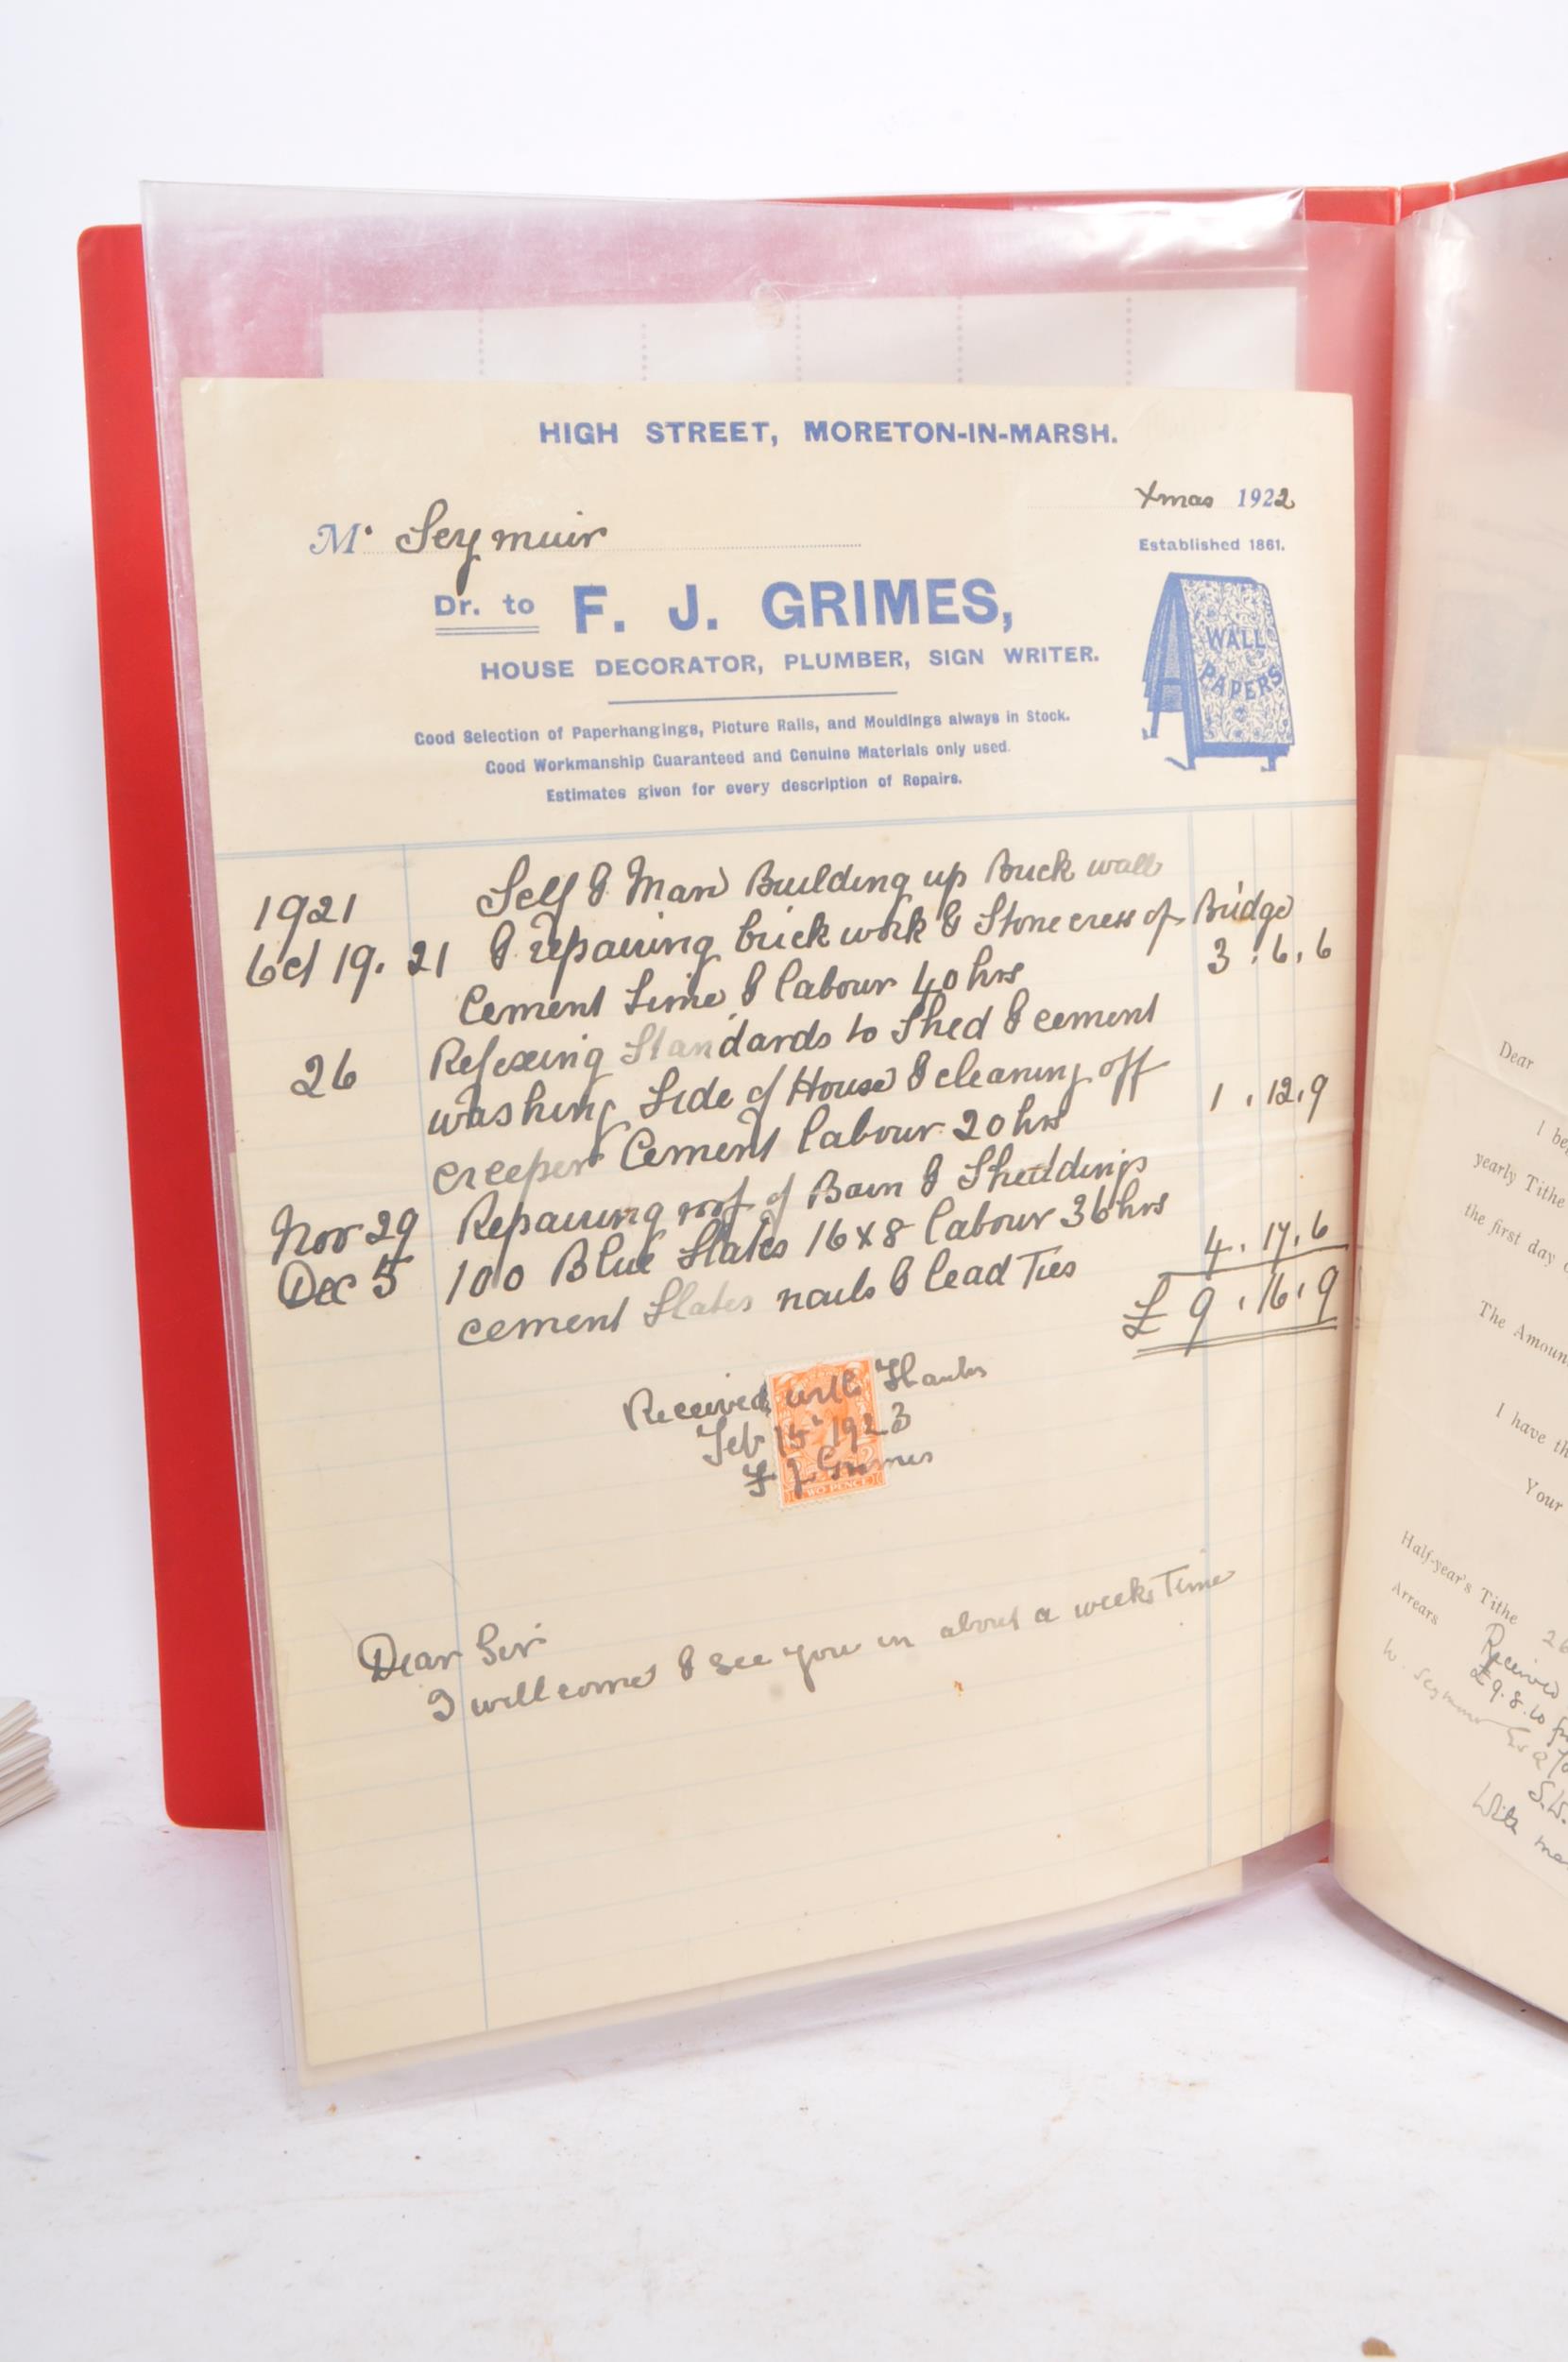 HIGH STREET, MORETON-IN-MARSH.
Xmas 1922
Mr Seymuir
Established 1861.
Dr. to F. J. GRIMES,
HOUSE DECORATOR, PLUMBER, SIGN WRITER.
WALL
PAPERS
Good Selection of Paperhangings, Picture Rails, and Mouldings always in Stock.
Good Workmanship Guaranteed and Genuine Materials only used.
Estimates given for every description of Repairs.
1921 Self & Man Building up Brick wall
Oct 19. 21 & repairing brick work & Stone of Bridge
Cement Lime & labour 40 hrs 3 . 6 . 6
26 Refixing Standards to Shed & cement
washing Side of House & cleaning off
creeper Cement labour 20 hrs 1 . 12 . 9
Nov 29 Repairing roof of Barn & Sheddings
Dec 5 100 Blue Slates 16 x 8 labour 36 hrs
cement Slates nails & lead Ties 4 . 17 . 6
£ 9 . 16 . 9
Received with Thanks
Feb 15 1923
F J Grimes
TWO PENCE
Dear Sir
I will come & see you in about a weeks Time
Dear
yearly Tithe
the first day
The Amoun
I have th
Your
Half-year's Tithe 26
Arrears
Received
£9.8.10
W. Seymour Esq
S.W.
With